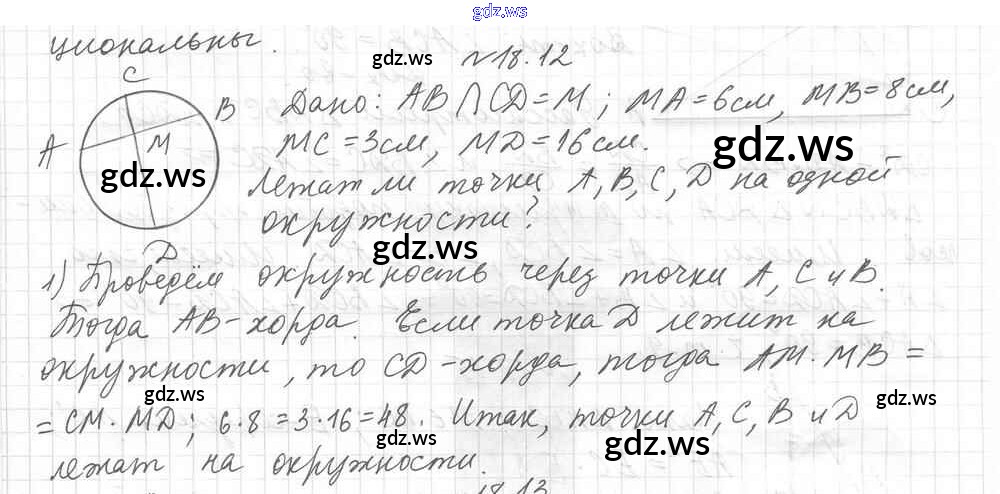 gdz.ws
циональны.
gdz.ws
№18.12
C
B
A
M
D
gdz.ws
Дано: AB ⋂ CD = M; MA = 6см, MB = 8см,
MC = 3см, MD = 16см.
gdz.ws
Лежат ли точки A, B, C, D на одной
окружности?
gdz.ws
1) Проведём окружность через точки A, C и B.
Тогда AB - хорда. Если точка D лежит на
окружности, то CD - хорда, тогда AM · MB =
gdz.ws
gdz.ws
= CM · MD; 6 · 8 = 3 · 16 = 48. Итак, точки A, C, B и D
gdz.ws
gdz.ws
лежат на окружности.
18.13